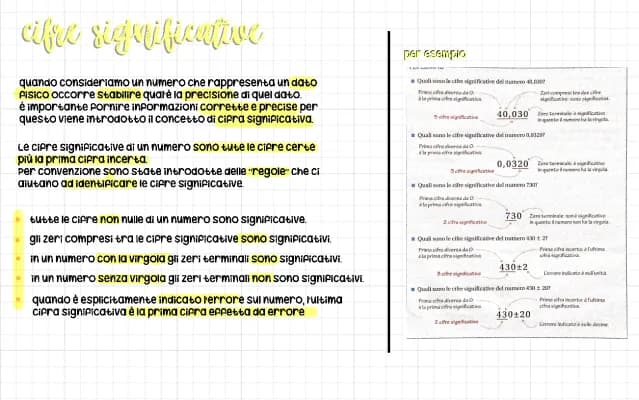 cifre significative
quando consideriamo un numero che rappresenta un dato
fisico occorre stabilire qual'è la precisione di quel dato.
è importante fornire informazioni corrette e precise per
questo viene introdotto il concetto di cifra significativa.
Le cifre significative di un numero sono tutte le cifre certe
più la prima cifra incerta.
Per convenzione sono state introdotte delle "regole" che ci
aiutano ad identificare le cifre significative.
tutte le cifre non nulle di un numero sono significative.
gli zeri compresi tra le cifre significative sono significativi.
in un numero con la virgola gli zeri terminali sono significativi.
in un numero senza virgola gli zeri terminali non sono significativi.
quando è esplicitamente indicato l'errore sul numero, l'ultima
cifra significativa è la prima cifra effetta da errore
per esempio
Quali sono le cifre significative del numero 40,030?
Prima cifra diversa da 0:
è la prima cifra significativa.
Zeri compresi tra due cifre
significative: sono significativi.
40,030
5 cifre significative
Zero terminale: è significativo
in quanto il numero ha la virgola.
Quali sono le cifre significative del numero 0,0320?
Prima cifra diversa da 0:
è la prima cifra significativa.
0,0320
3 cifre significative
Zero terminale: è significativo
in quanto il numero ha la virgola.
Quali sono le cifre significative del numero 730?
Prima cifra diversa da 0:
è la prima cifra significativa.
730
2 cifre significative
Zero terminale: non è significativo
in quanto il numero non ha la virgola.
Quali sono le cifre significative del numero 430 ± 2?
Prima cifra diversa da 0:
è la prima cifra significativa.
Prima cifra incerta: è l'ultima
cifra significativa.
430±2
3 cifre significative
L'errore indicato è sull'unità.
Quali sono le cifre significative del numero 430 ± 20?
Prima cifra diversa da 0:
è la prima cifra significativa.
Prima cifra incerta: è l'ultima
cifra significativa.
430±20
2 cifre significative
L'errore indicato è sulle decine.